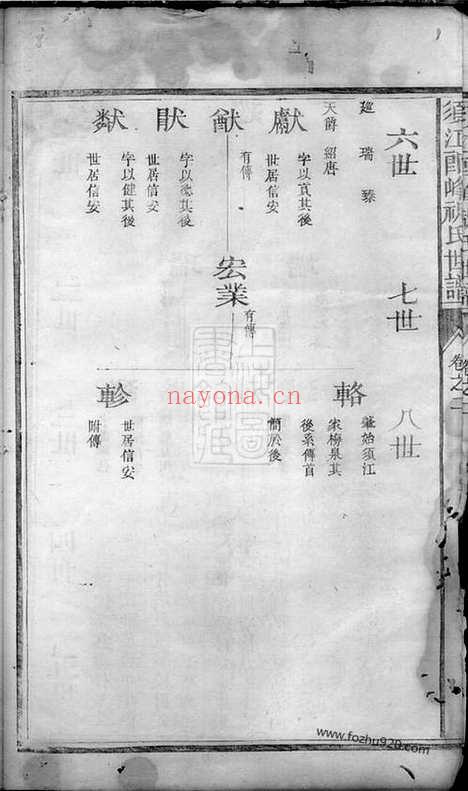 須江郎峰祝氏世譜
卷之二
六世
七世
八世
廷瑞臻
天爵紹唐
獻
字以貢其後
世居信安
猷
有傳
字以德其後
世居信安
字以健其後
世居信安
宏業
有傳
輅
肇始須江
家梅泉其
後系傳首
簡於後
軫
世居信安
附傳
nayona.cn
www.fozhu920.com